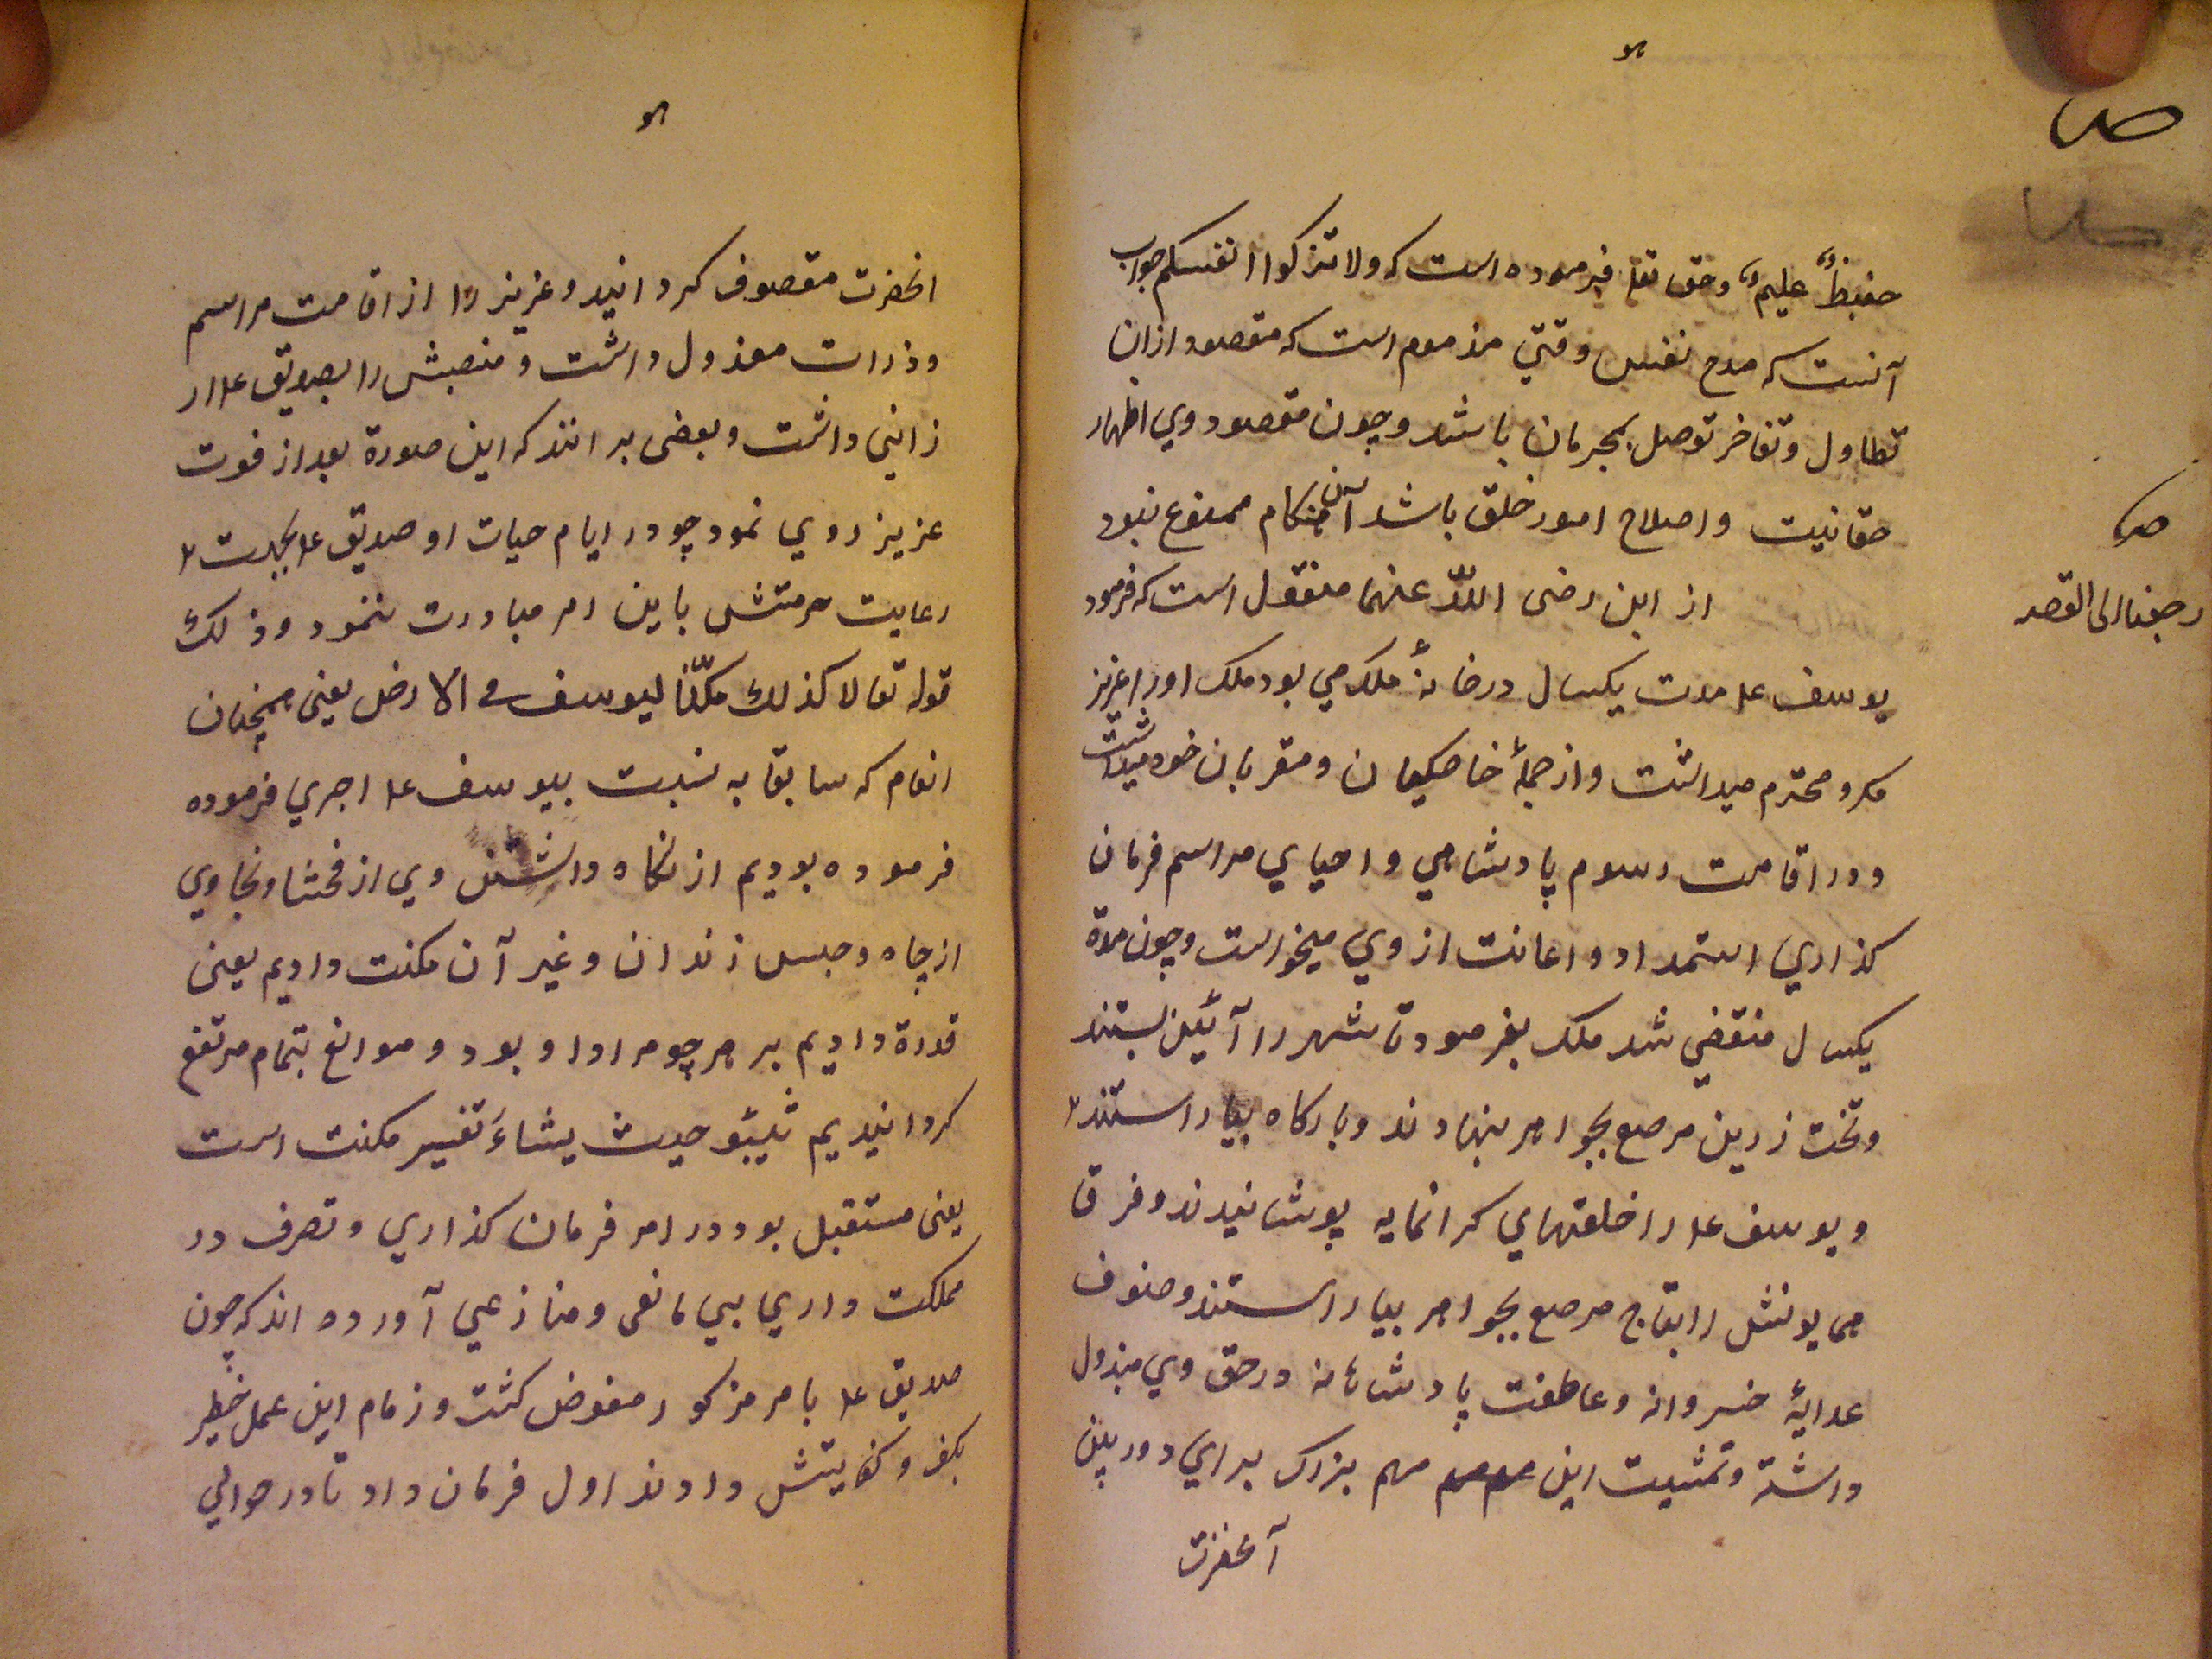 هو
حفیظٌ علیمٌ وحق تعا فیرموده است که ولا تزکوا انفسکم جواب
آنست که مدح نفس وقتی مذموم است که مقصود ازان
تطاول وتفاخر توصل بحرمان باشد وچون مقصود وي اظهار
حقانیت واصلاح امور خلق باشد آن هنکام ممنوع نبود
از ابن رضی اللّه عنهما منقول است که فرمود
رجعنا الی القصه
یوسف علـ مدت یکسال در خانهٔ ملک می بود ملک اورا عزیز
مکرم و محترم میداشت واز جملهٔ خاصکیان ومقربان خود میداشت
ودر اقامت رسوم پادشاهي واحیاي مراسم فرمان
کذاري استمداد واعانت از وي میخواست وچون مدة
یکسال منقضي شد ملک بفرمود تا شهر را آئین بستند
وتخت زرین مرصع بجواهر بنهادند وبارکاه بیاراستند
ویوسف علـ را خلعتهاي کرانمایه پوشانیدند وفرق
همایونش را بتاج مرصع بجواهر بیاراستند وصنوف
خسروانه وعاطفت پادشاهانه در حق وي مبذول
داشته وتمشیت این مهم بزرک براي دوربین
آنحضرت
هو
انحضرت مقصوف کردانید وعزیز را از اقامت مراسم
وذرات معذول داشت ومنصبش را بصدیق علـ ار
زاني داشت وبعضی برانند که این صورة بعد از فوت
عزیز روي نمود چو در ایام حیات او صدیق علـ بجهت
رعایت حرمتش باین امر مبادرت ننمود وذلک
قوله تعالا کذلک مکنّا لیوسف في الارض یعنی همچنان
انعام که سابقا به نسبت بیوسف علـ اجري فرموده
فرموده بودیم از نکاه داشتن وي از فحشا ونجا وي
از چاه وحبس زندان وغیر آن مکنت دادیم یعنی
قدرة دادیم بر هرچو مراد او بود وموانع بتمام مرتفع
کردانیدیم یتبؤ حیث یشاءَ تفسیر مکنت است
یعنی مستقبل بود در امر فرمان کذاري وتصرف در
مملکت داري بي مانعی ومنازعي آورده اند که چون
صدیق علـ بامر مزکور مفوض کشت وزمام این عمل خطیر
بکف وکفایتش دادند اول فرمان داد تا در حوالي